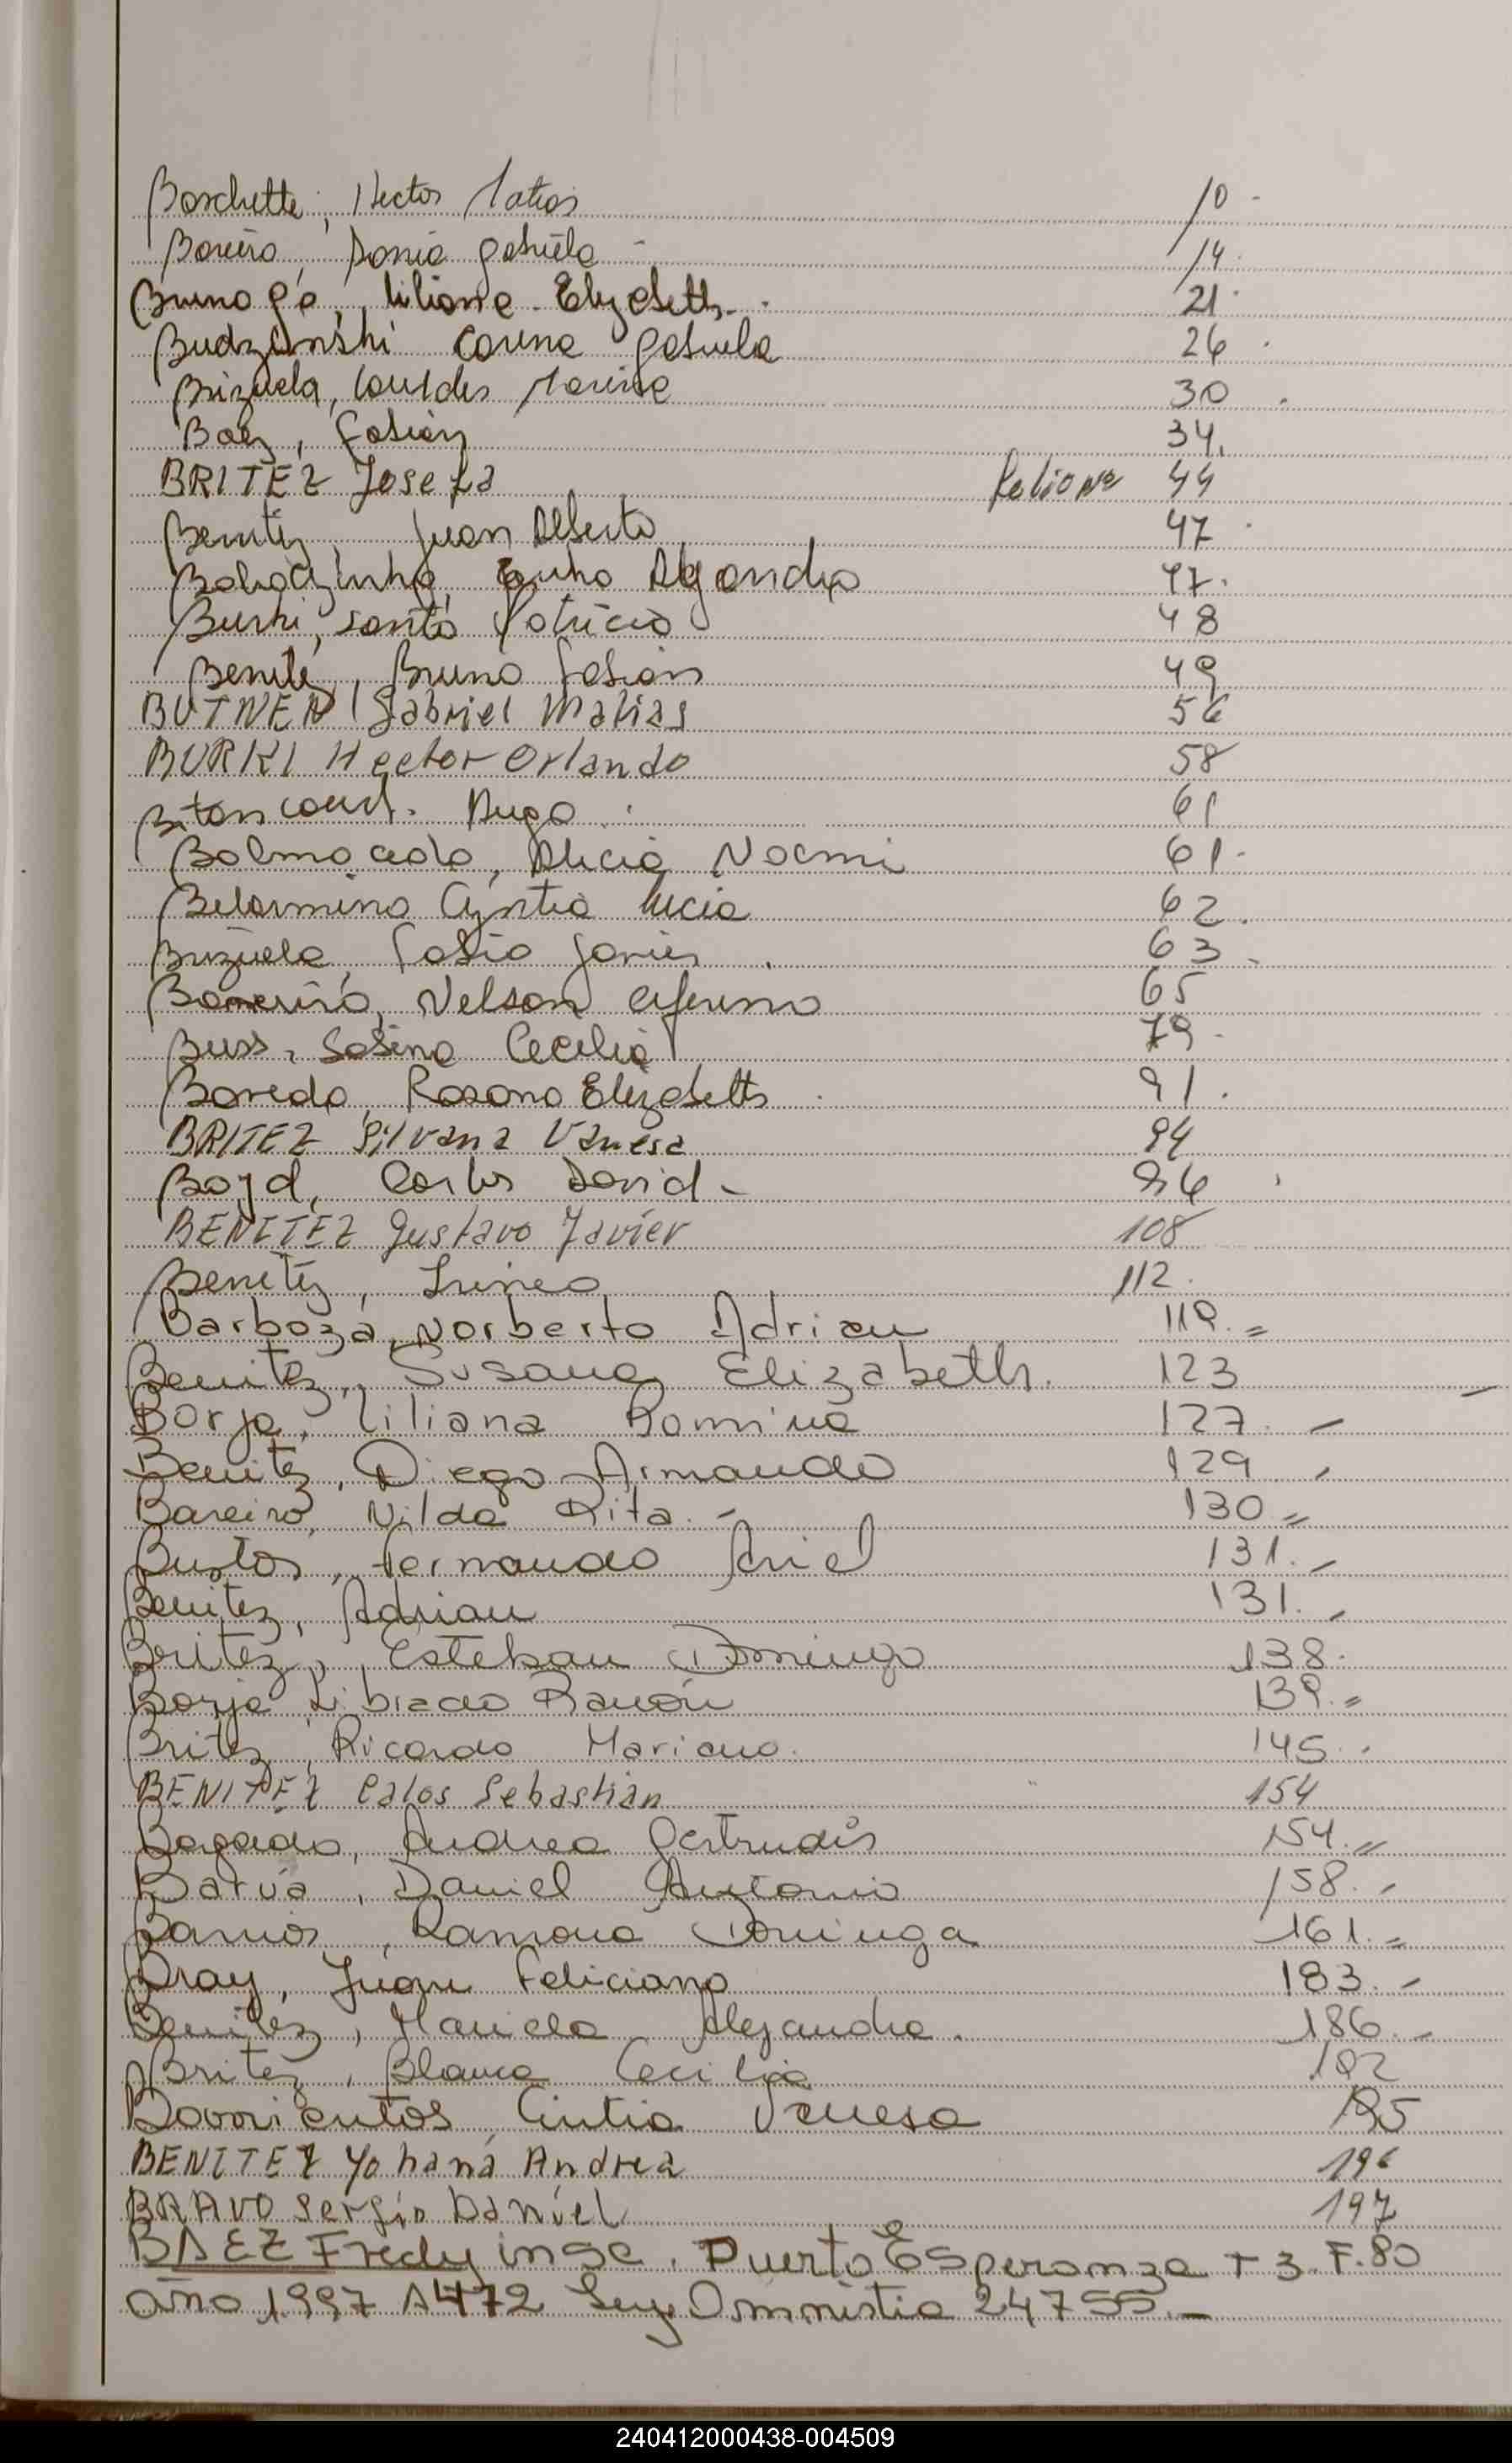 Boschetti, Hector Matias 10
Boreiro, Sonia Gabriela 14
Brunaga, Liliana Elizabeth 21
Budzinski Corina Gabriela 26
Brizuela, Lourdes Marina 30
Baez, Fabian 34.
BRITEZ Josefa Folio Nº 44
Benitez, Juan Alberto 47
Alejandro 47.
Burki, Santa Patricia 48
Benitez, Bruno Fabian 49
BUTNER Gabriel Matias 56
BURKI Hector Orlando 58
Bitancourt. Hugo 61
Balmaceda, Alicia Noemi 61.
Belarmino Cyntia Lucia 62.
Brizuela, Fabio Javier 63
Nelson Ceferino 65
Buss, Sabina Cecilia 79
Boveda, Rosana Elizabeth 91.
BRITEZ Silvana Vanesa 94
Boyd, Carlos David - 96
BENITEZ Gustavo Javier 108
Benitez, Irineo 112.
Barboza, Norberto Adrian 119.=
Benitez, Susana Elizabeth. 123
Borja, Liliana Romina 127. -
Benitez, Diego Armando 129
Bareiro, Nilda Rita. - 130 =
Bustos, Fernando Ariel 131. -
Benitez, Adrian 131. -
Britez, Esteban Domingo 138.
Borja Librado Ramón 139.=
Britez, Ricardo Mariano. 145.
BENITEZ Calos Sebastián 154
Bogado, Andrea Gertrudis 154.=
Barúa, Daniel Antonio 158. -
Barrios, Ramona Dominga 161.=
Bray, Juan Feliciano 183. -
Benitez, Mariela Alejandra. 186. -
Britez, Blanca Cecilia 192
Barrientos, Cintia Vanesa 195
BENITEZ Yohaná Andrea 196
BRAVO Sergio Daniel 197
BAEZ Fredy insc. Puerto Esperanza T 3. F.80
año 1997 A472 Ley Omnistia 24755.-